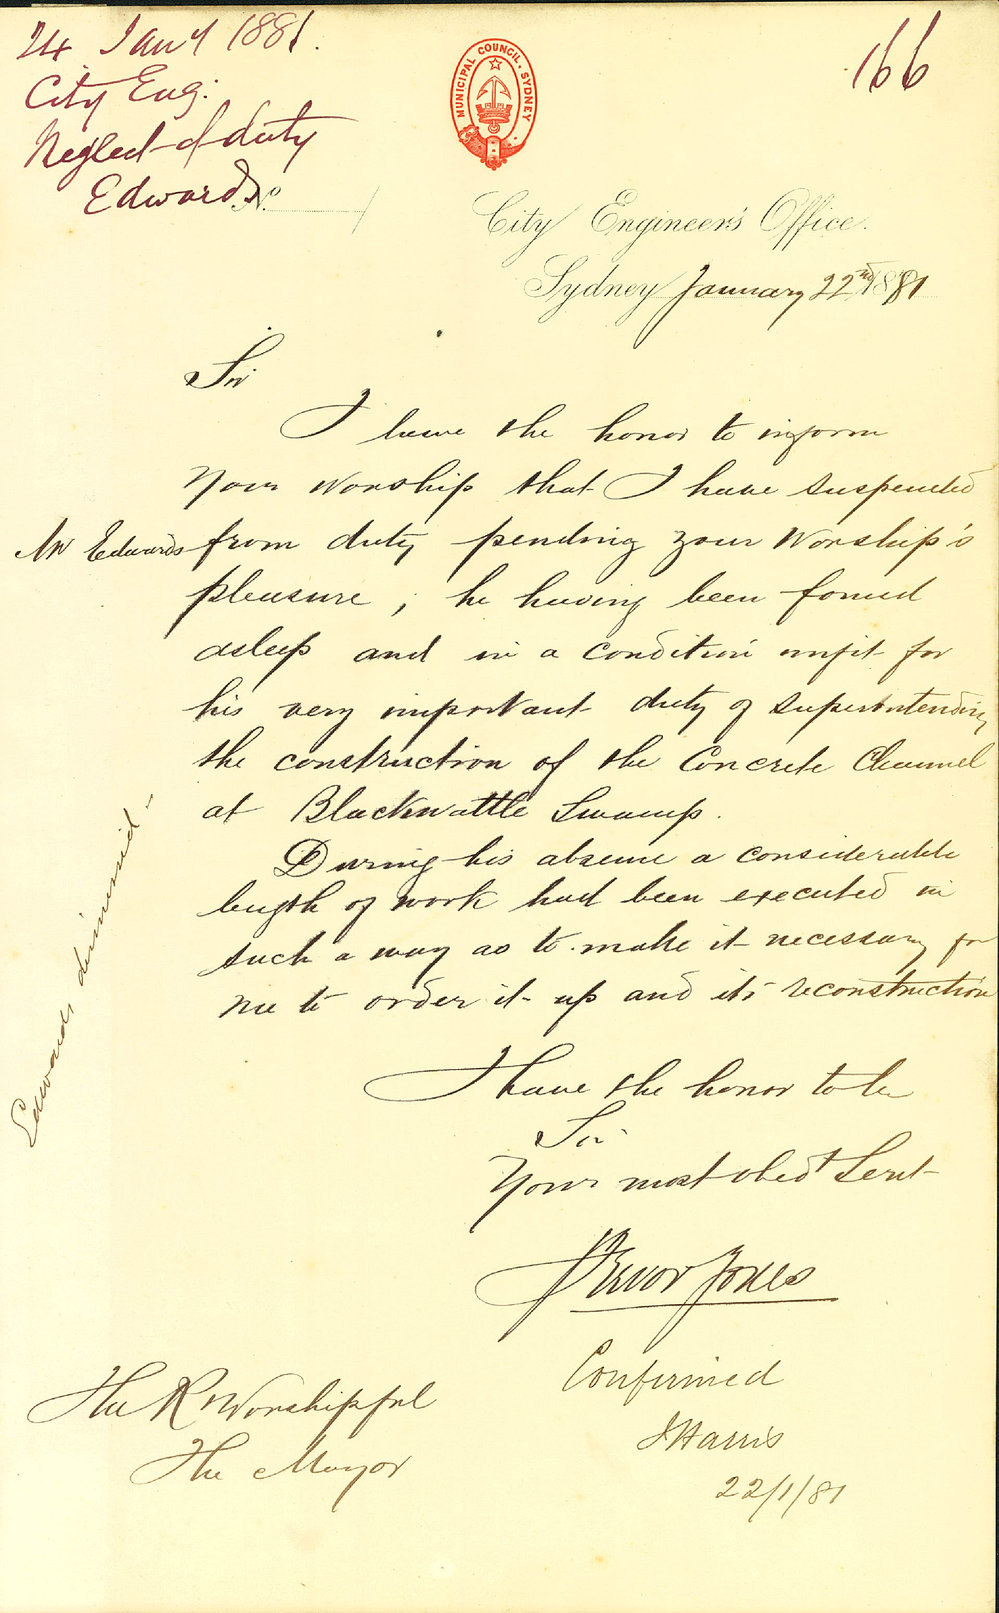 24 Jany 1881.
City Eng:
Neglect of duty
Edwards
166
MUNICIPAL COUNCIL. SYDNEY
No.
City Engineer's Office.
Sydney January 22nd 1881
Sir
I have the honor to inform
Your Worship that I have suspended
Mr Edwards from duty pending your Worship's
pleasure, he having been found
asleep and in a condition unfit for
his very important duty of superintending
the construction of the Concrete Channel
at Blackwattle Swamp.
During his absence a considerable
length of work had been executed in
such a way as to make it necessary for
me to order it up and its reconstruction
I have the honor to be
Sir
Your most obedt Servt
Trevor Jones
Confirmed
J Harris
22/1/81
The Rt Worshipful
The Mayor
Edwards dismissed -